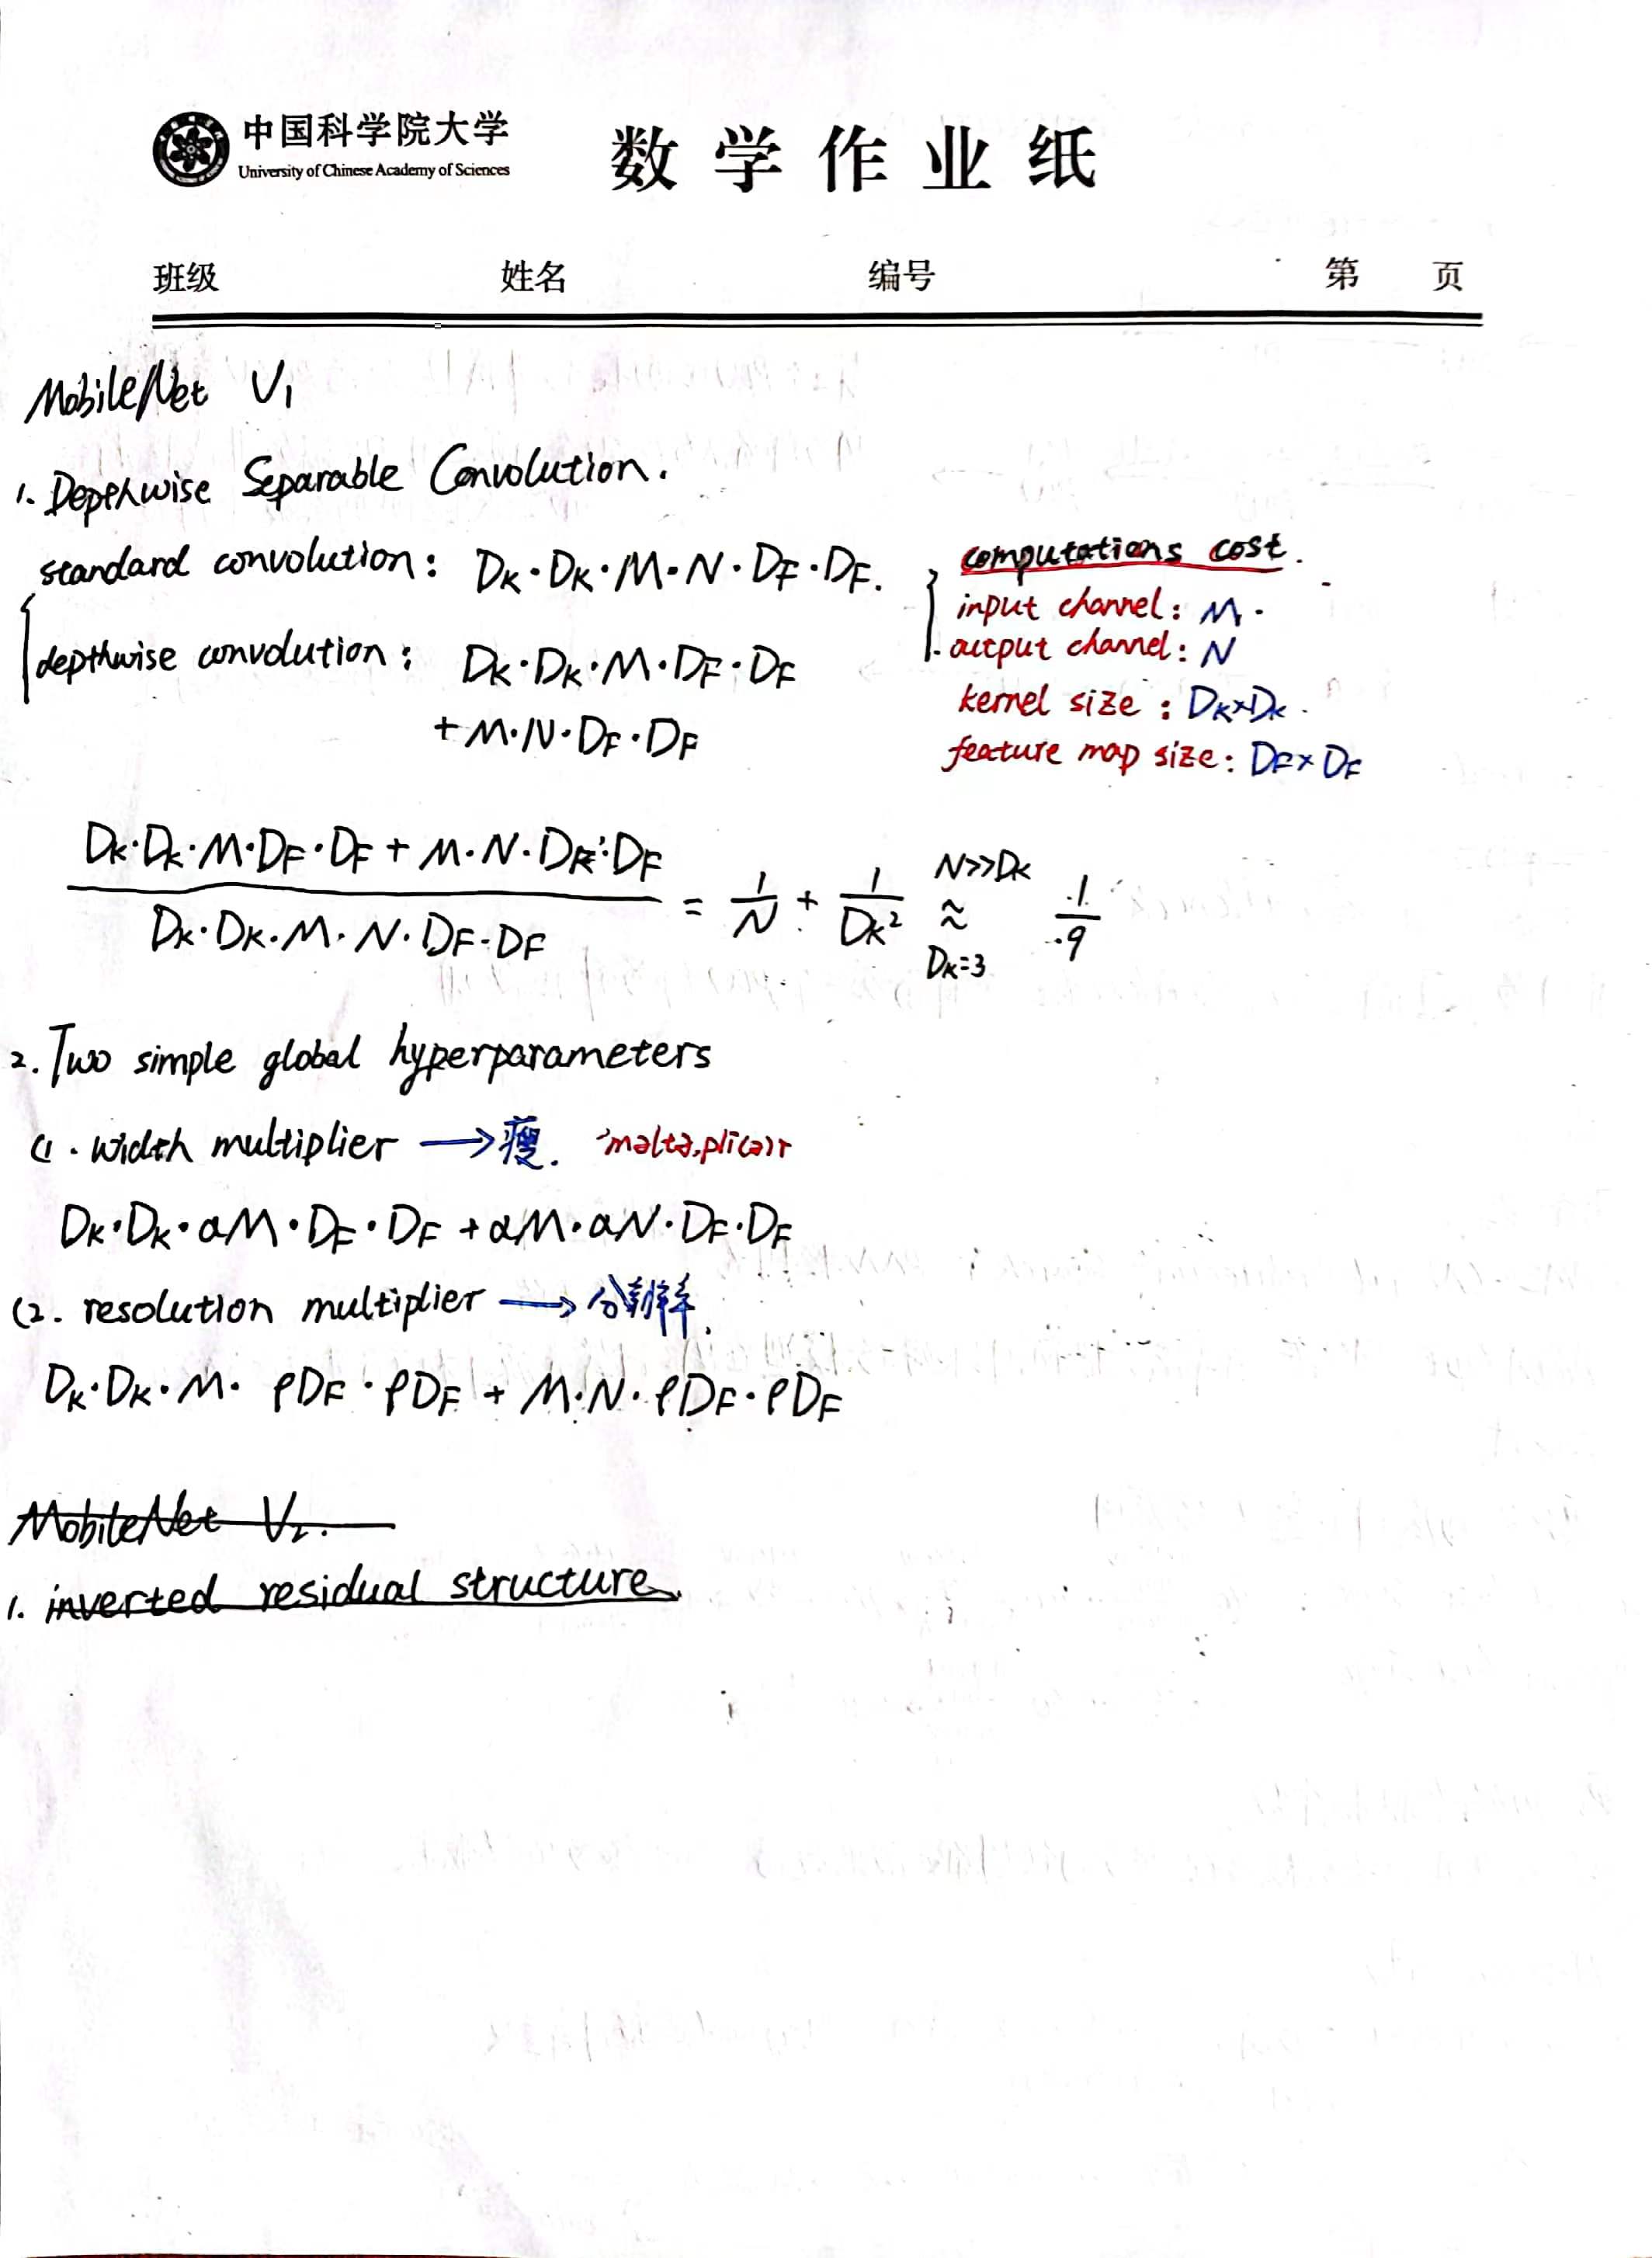 中国科学院大学
University of Chinese Academy of Sciences
数学作业纸
班级 姓名 编号 第 页
MobileNet V1
1. Depthwise Separable Convolution.
standard convolution: DK·DK·M·N·DF·DF.
depthwise convolution: DK·DK·M·DF·DF
+M·N·DF·DF
computations cost.
input channel: M.
output channel: N
kernel size: DK×DK.
feature map size: DF×DF
DK·DK·M·DF·DF + M·N·DF·DF / DK·DK·M·N·DF·DF = 1/N + 1/DK² ≈ 1/9
N>>DK
DK=3
2. Two simple global hyperparameters
(1. width multiplier → 瘦.
DK·DK·αM·DF·DF + αM·αN·DF·DF
(2. resolution multiplier → 分辨率.
DK·DK·M·ρDF·ρDF + M·N·ρDF·ρDF
MobileNet V2.
1. inverted residual structure.